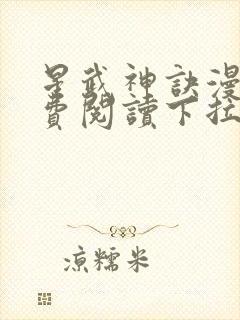 星武神訣漫
費閱讀下拉
涼糯米